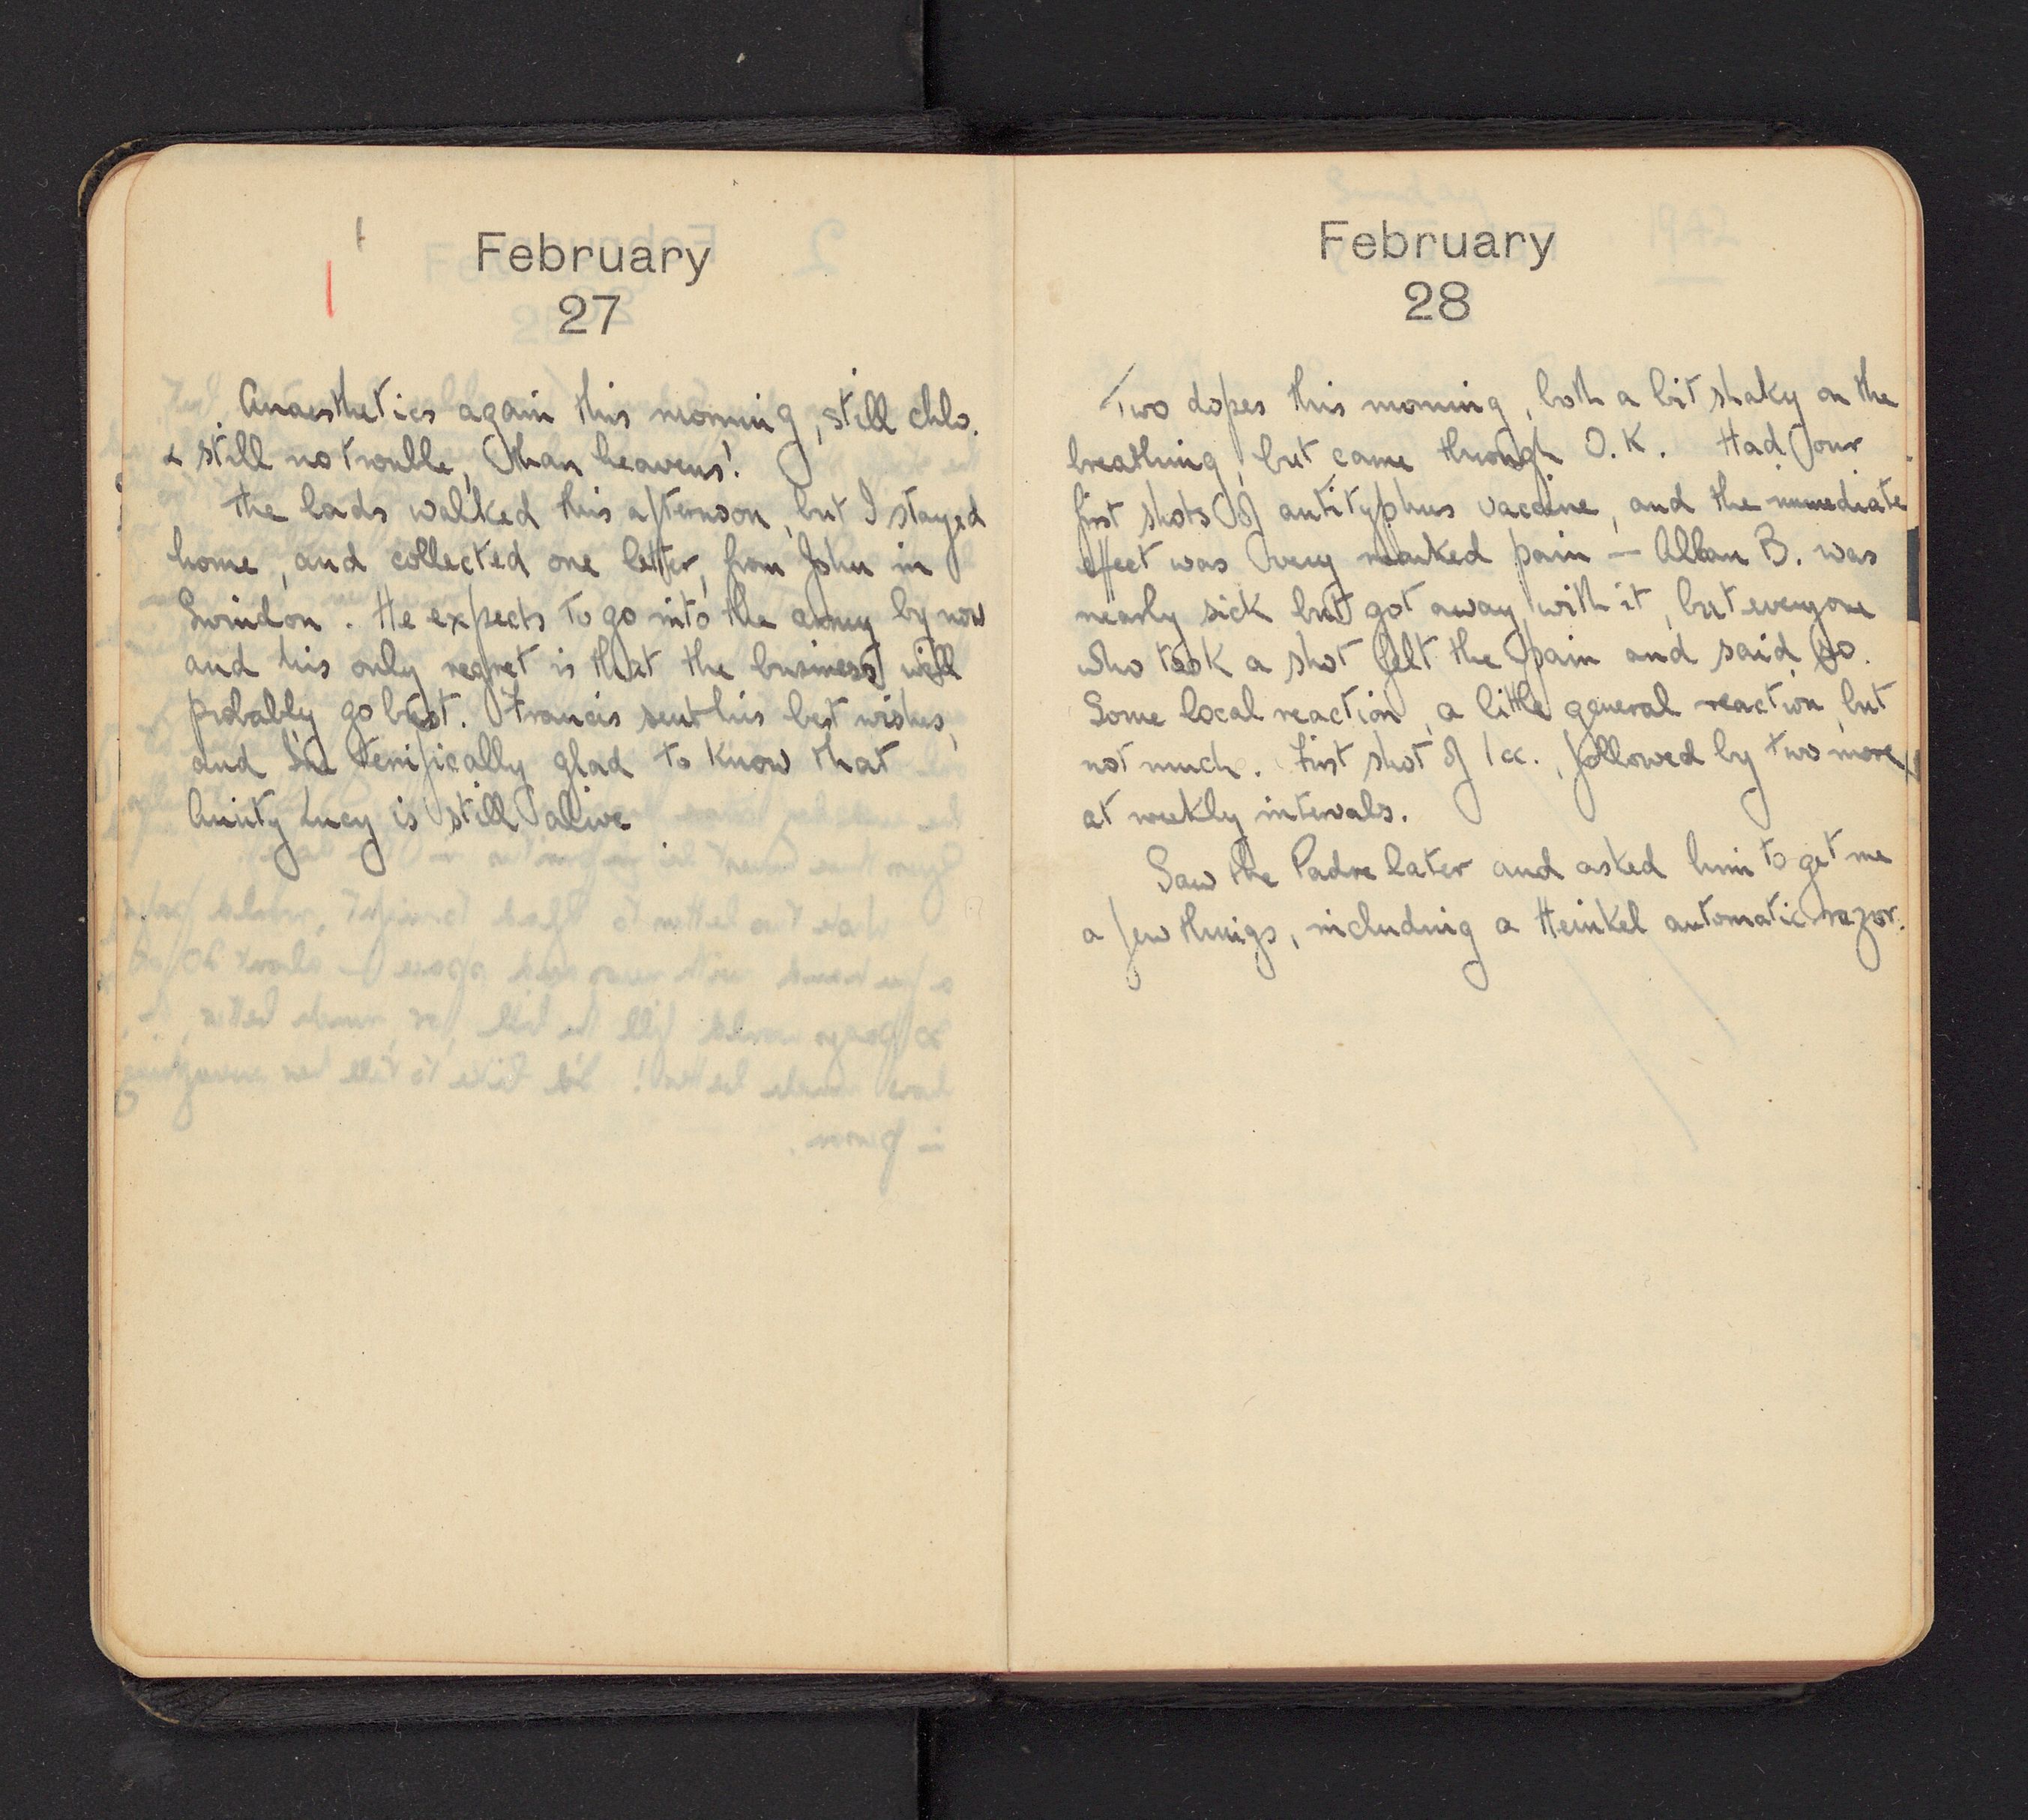 February
27
Anaesthetics again this morning, still chlo.
& still no trouble, than heavens!
The lads walked this afternoon, but I stayed
home, and collected one letter, from John in
Swindon. He expects to go into the army by now
and his only regret is that the business will
probably go bust. Francis sent his best wishes,
and I'm terrifically glad to know that
Aunty Lucy is still alive
February
28
Two dopes this morning, both a bit shaky on the
breathing, but came through O.K. Had our
first shots of antityphus vaccine, and the immediate
effect was very marked pain — Allan B. was
nearly sick but got away with it, but everyone
who took a shot felt the pain and said so.
Some local reaction, a little general reaction, but
not much. First shot of 1cc., followed by two more
at weekly intervals.
Saw the Padre later and asked him to get me
a few things, including a Heinkel automatic razor.